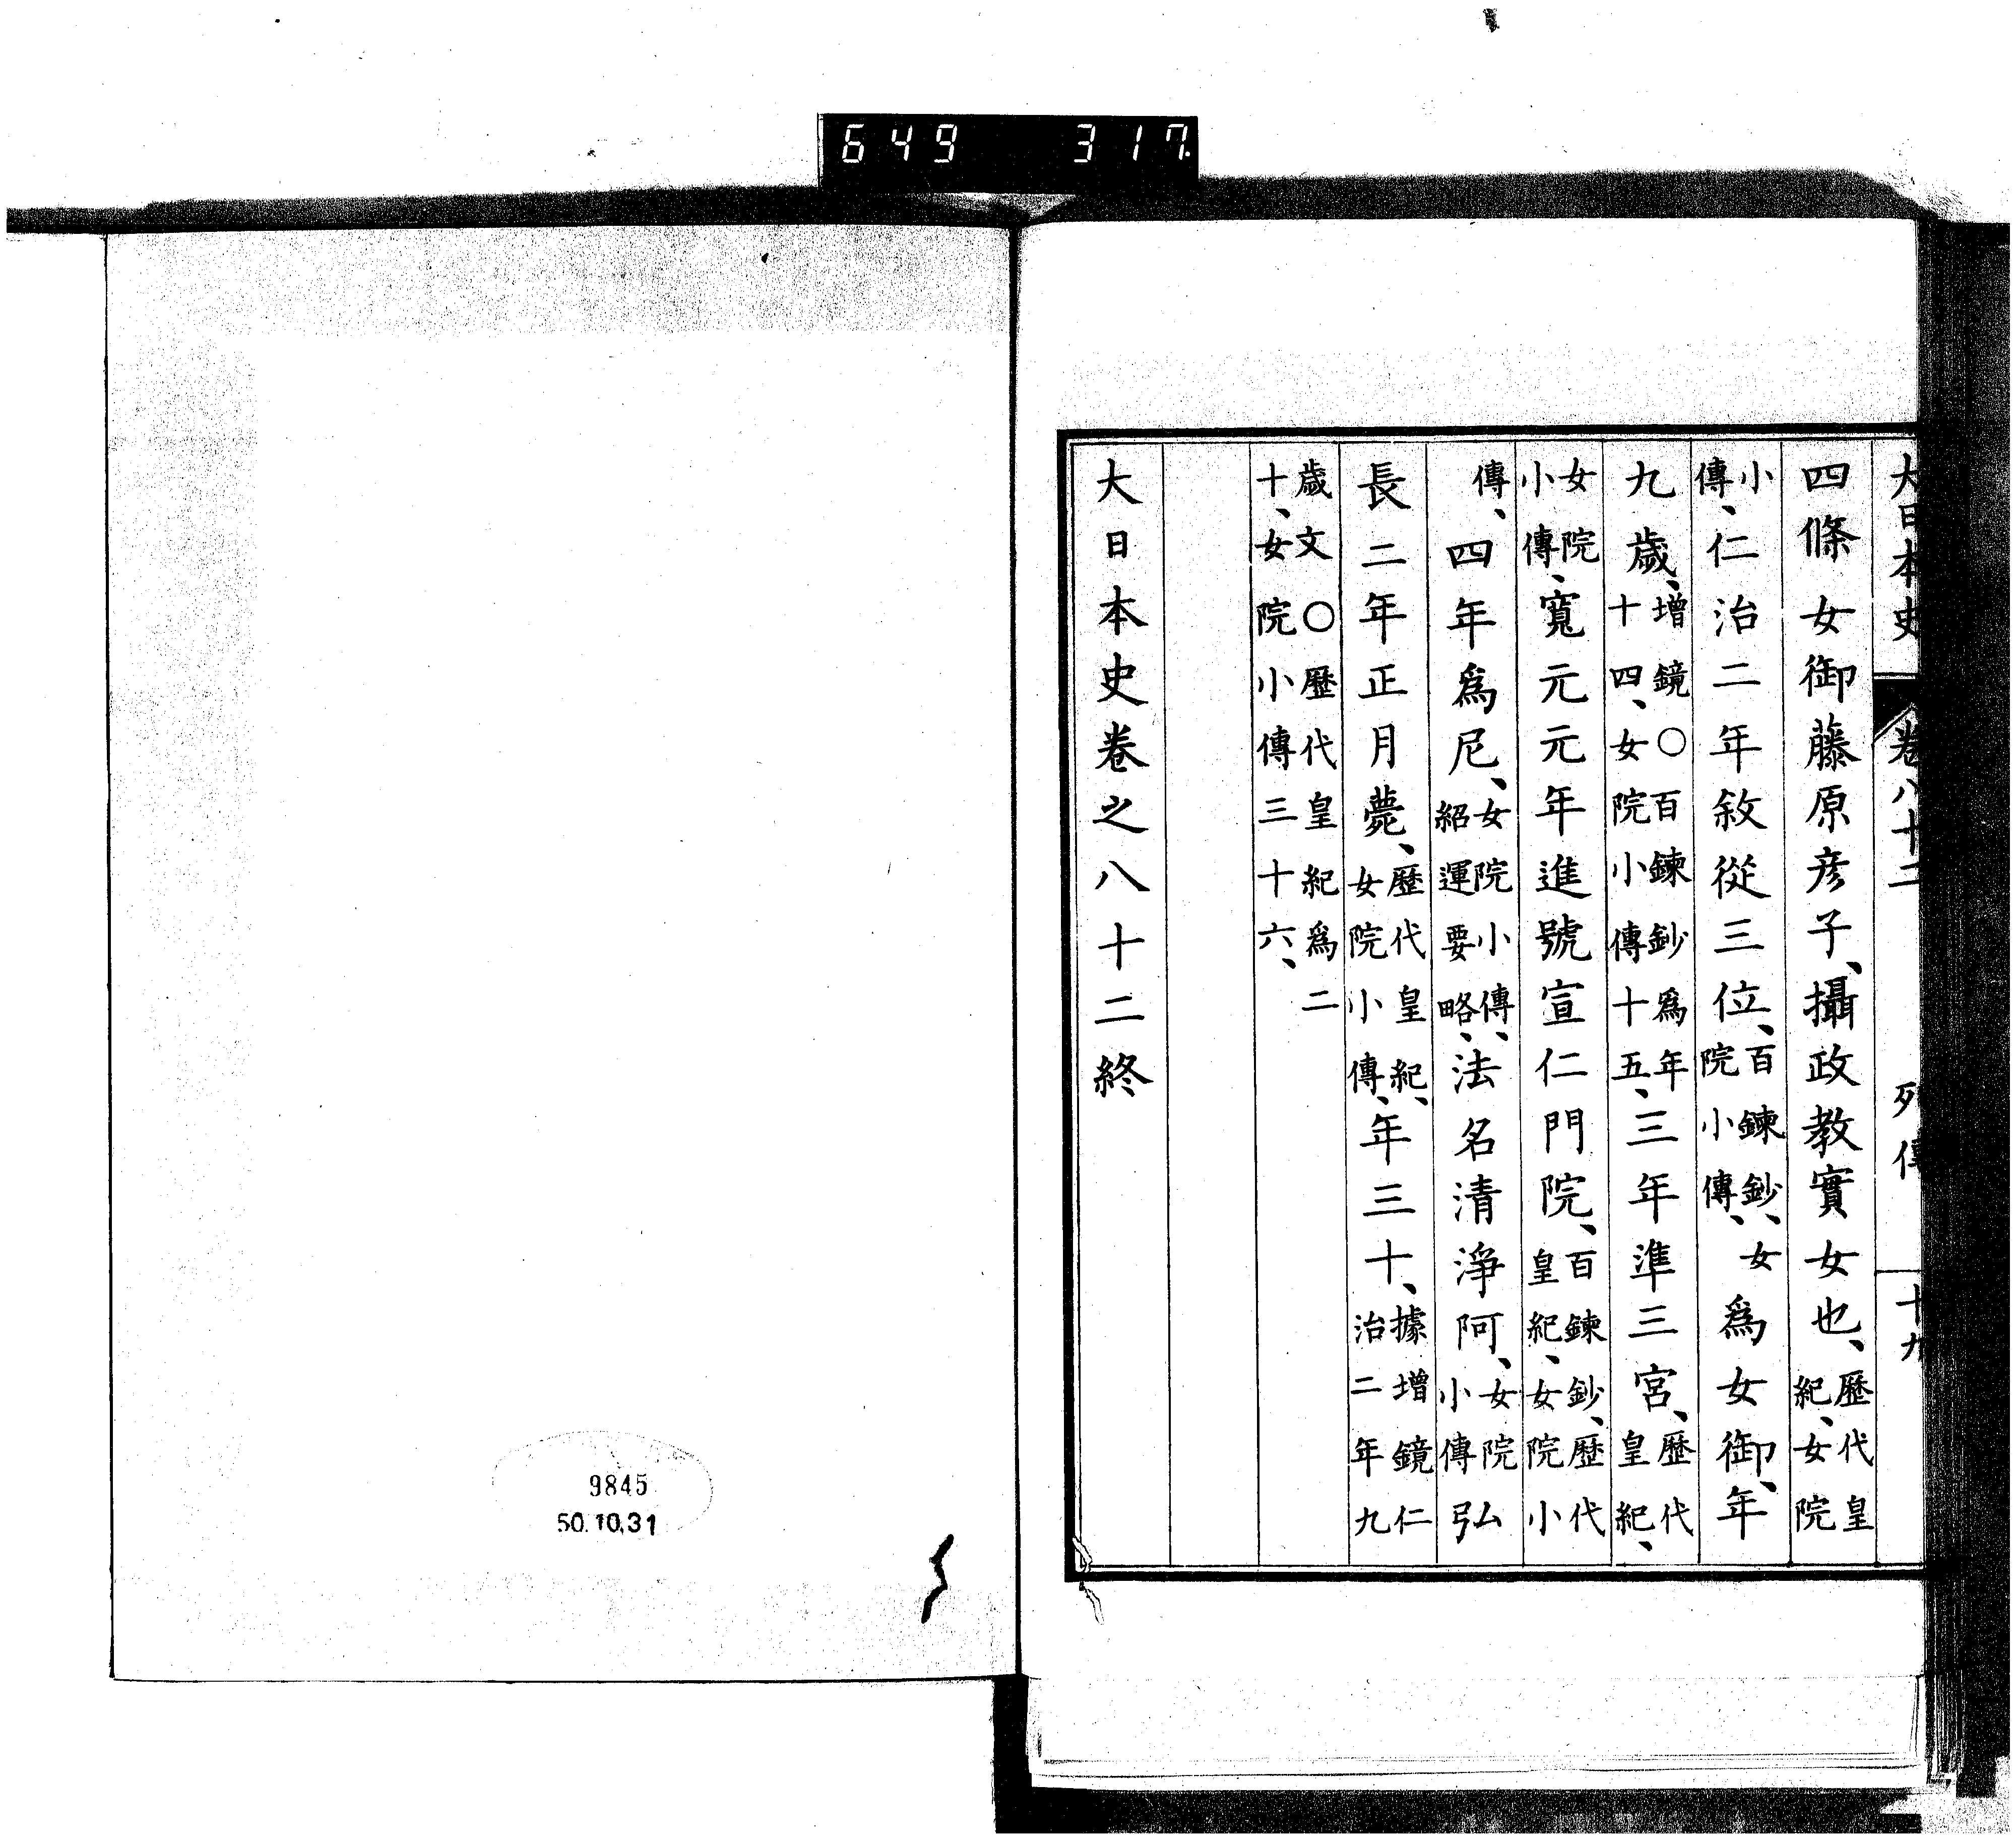 649 317
大日本史 卷八十二 列傳 十九
四條女御藤原彦子、攝政教實女也、歷代皇紀、女院
小傳、仁治二年敘從三位、百鍊鈔、女院小傳、爲女御、年
九歲、增鏡〇百鍊鈔爲年十四、女院小傳十五、三年準三宮、歷代皇紀、
女院小傳、寬元元年進號宣仁門院、百鍊鈔、歷代皇紀、女院小
傳、四年爲尼、女院小傳、紹運要略、法名清淨阿、女院小傳弘
長二年正月薨、歷代皇紀、女院小傳、年三十、據增鏡仁治二年九
歲文〇歷代皇紀爲二十、女院小傳三十六、
大日本史卷之八十二終
9845
50.10.31